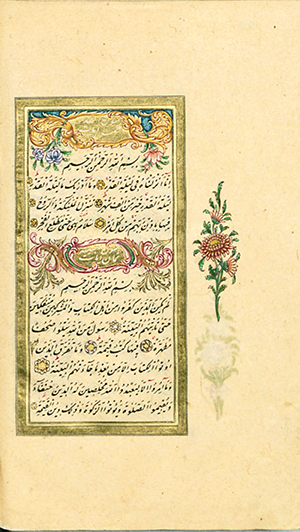 بسم الله الرحمن الرحيم
انا انزلناه في ليلة القدر وما ادريك ما ليلة القدر
ليلة القدر خير من الف شهر تنزل الملئكة والروح
فيها باذن ربهم من كل امر سلام هي حتى مطلع الفجر
بسم الله الرحمن الرحيم
لم يكن الذين كفروا من اهل الكتاب والمشركين منفكين
حتى تأتيهم البينة رسول من الله يتلوا صحفا
مطهرة فيها كتب قيمة وما تفرق الذين
اوتوا الكتاب الا من بعد ما جاءتهم البينة
وما امروا الا ليعبدوا الله مخلصين له الدين حنفاء
ويقيموا الصلوة ويؤتوا الزكوة وذلك دين القيمة